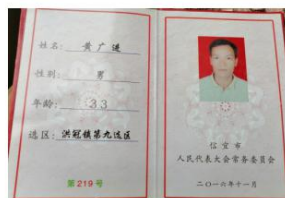 姓名：黄广进
性别：男
年龄：33
选区：洪冠镇第九选区
第219号
信宜市
人民代表大会常务委员会
二〇一六年十一月